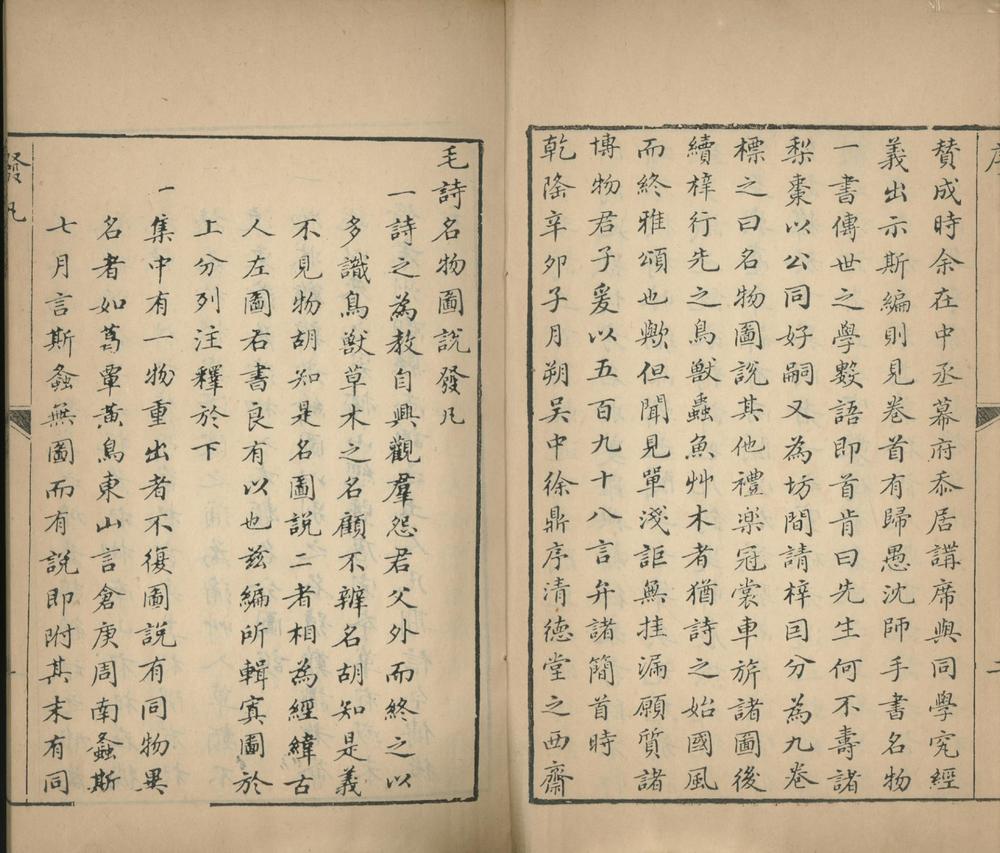 序
二
賛成時余在中丞幕府忝居講席與同學究經
義出示斯編則見卷首有歸愚沈師手書名物
一書傳世之學數語即首肯曰先生何不壽諸
梨棗以公同好嗣又為坊間請梓囙分為九卷
標之曰名物圖說其他禮樂冠裳車旂諸圖後
續梓行先之鳥獸蟲魚艸木者猶詩之始國風
而終雅頌也歟但聞見單淺詎無挂漏願質諸
博物君子爰以五百九十八言弁諸簡首時
乾隆辛夘子月朔吴中徐鼎序清德堂之西齋
毛詩名物圖說發凡
一詩之為教自興觀羣怨君父外而終之以
多識鳥獸草木之名顧不辨名胡知是義
不見物胡知是名圖說二者相為經緯古
人左圖右書良有以也兹編所輯寘圖於
上分列注釋於下
一集中有一物重出者不復圖說有同物異
名者如葛覃黄鳥東山言倉庚周南螽斯
七月言斯螽無圖而有說即附其末有同
發凡
一